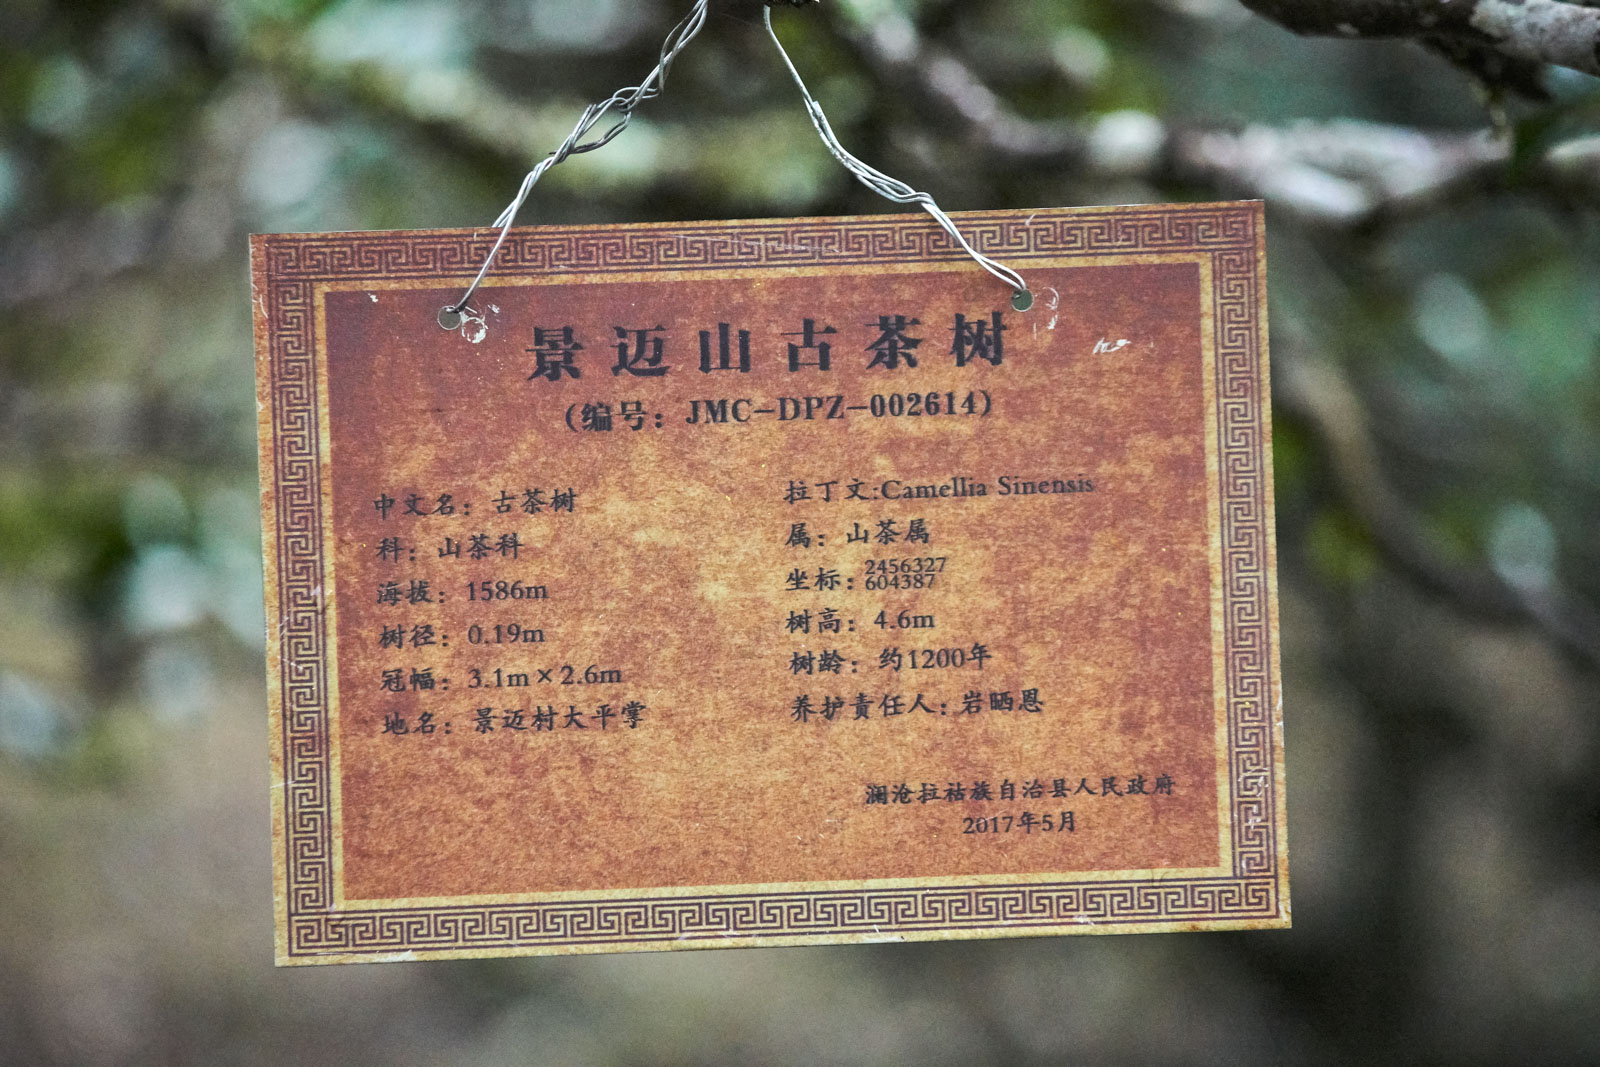 景迈山古茶树
（编号：JMC-DPZ-002614）
中文名：古茶树
科：山茶科
海拔：1586m
树径：0.19m
冠幅：3.1m×2.6m
地名：景迈村大平掌
拉丁文:Camellia Sinensis
属：山茶属
坐标：2456327
604387
树高：4.6m
树龄：约1200年
养护责任人：岩晒恩
澜沧拉祜族自治县人民政府
2017年5月